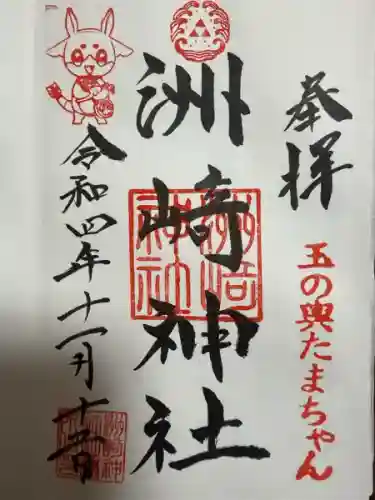 奉拝
玉の輿たまちゃん
洲崎神社
令和四年十一月十五日
洲崎神社